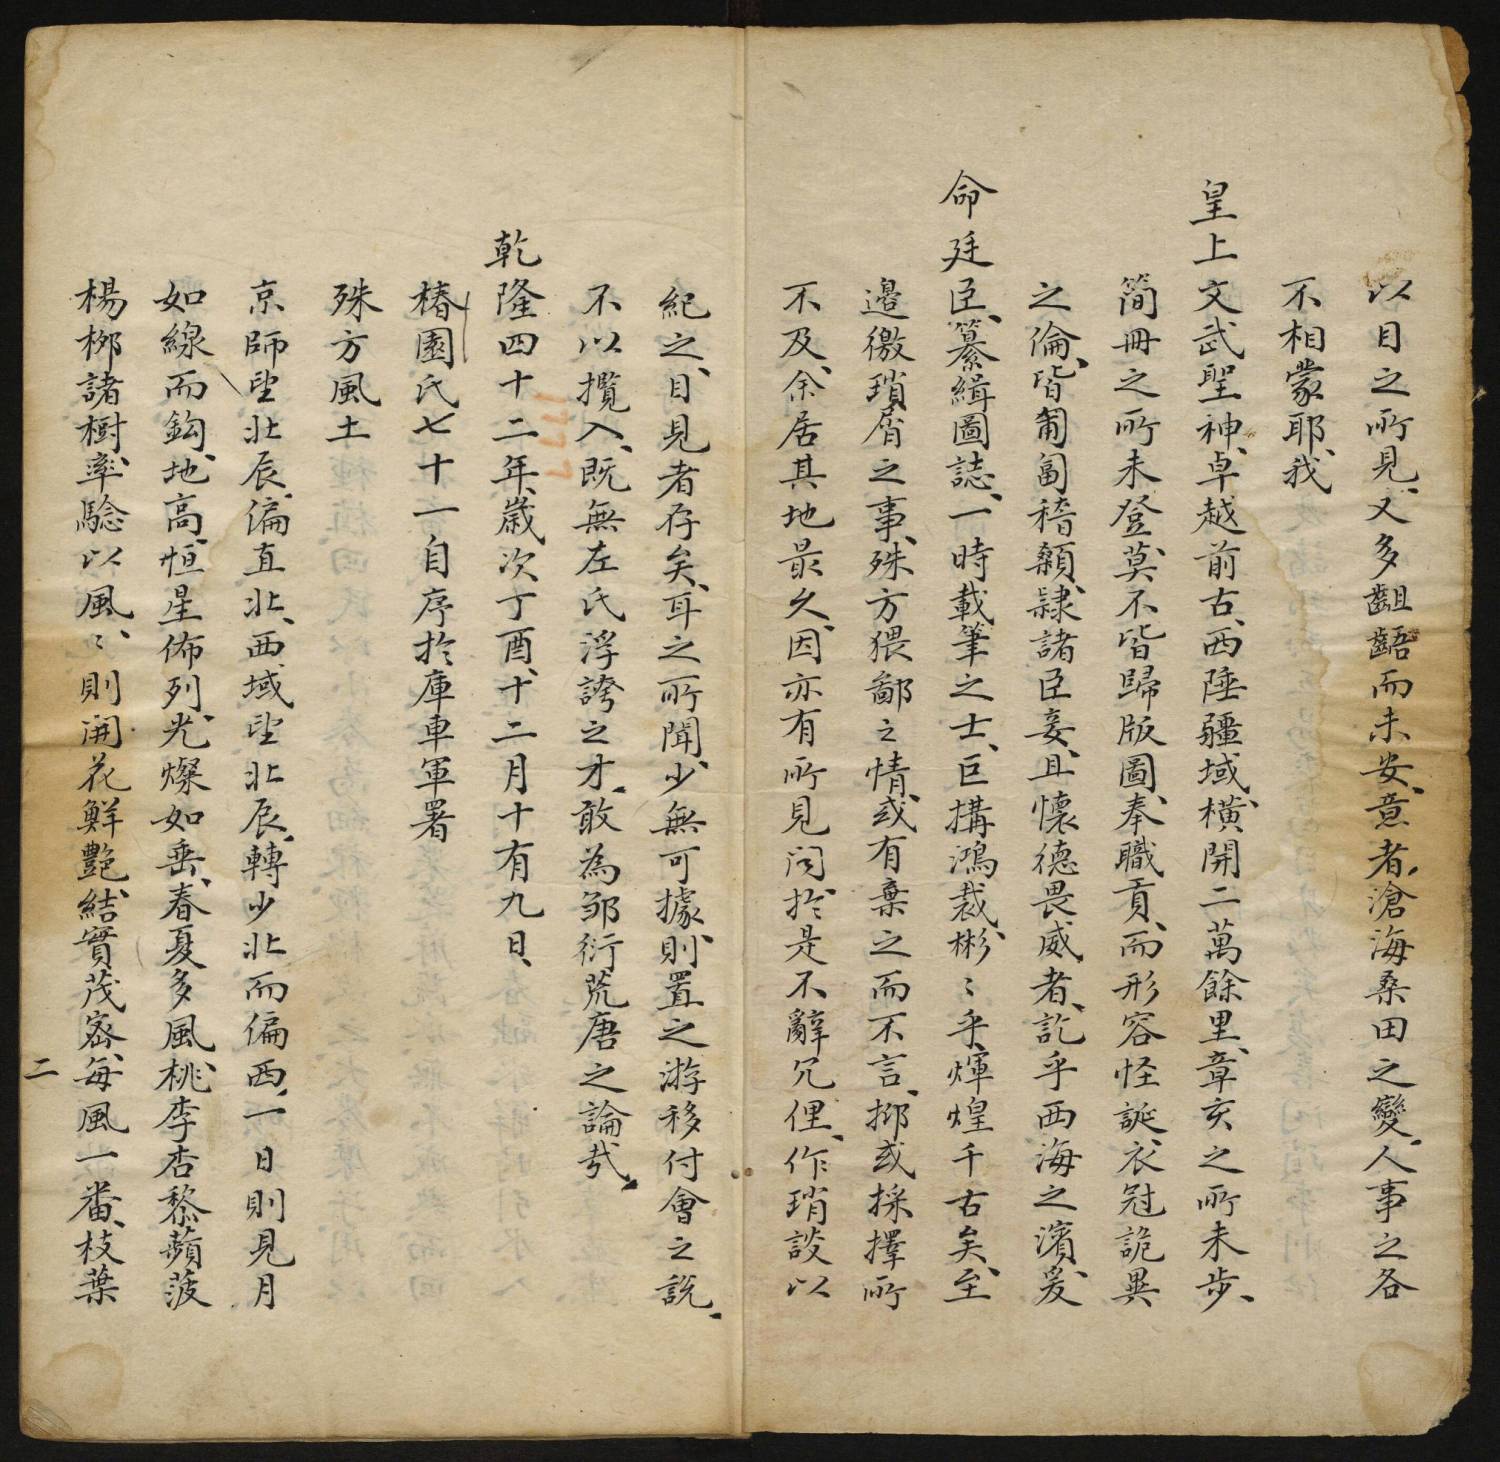 以目之所見、又多齟齬而未安、意者、滄海桑田之變、人事之各
不相蒙耶、我
皇上文武聖神、卓越前古、西陲疆域、橫開二萬餘里、章亥之所未步、
簡冊之所未登、莫不皆歸版圖、奉職貢、而形容怪誕、衣冠詭異
之倫、皆匍匐稽顙、隷諸臣妾、且懷德畏威者、訖乎西海之濱、爰
命廷臣、纂緝圖誌、一時載筆之士、巨搆鴻裁、彬〻乎煇煌千古矣、至
邉徼瑣屑之事、殊方猥鄙之情、或有棄之而不言、抑或採擇所
不及、余居其地最久、因亦有所見闻、扵是不辭冗俚、作瑣談以
紀之、目見者存矣、耳之所聞、少無可據、則置之、游移付會之説、
不以攬入、既無左氏浮誇之才、敢為邹衍荒唐之論㢤、
乾隆四十二年、歲次丁酉、十二月十有九日、
椿園氏七十一自序扵庫車軍署
殊方風土
京師望北辰、偏直北、西域望北辰、轉少北而偏西、一日則見月
如線而鈎、地高、恒星佈列、光燦如垂、春夏多風、桃李杏黎蘋菠
楊栁諸樹、率騐以風、〻則開花鮮艷、結實茂宻、每風一番、枝葉
二